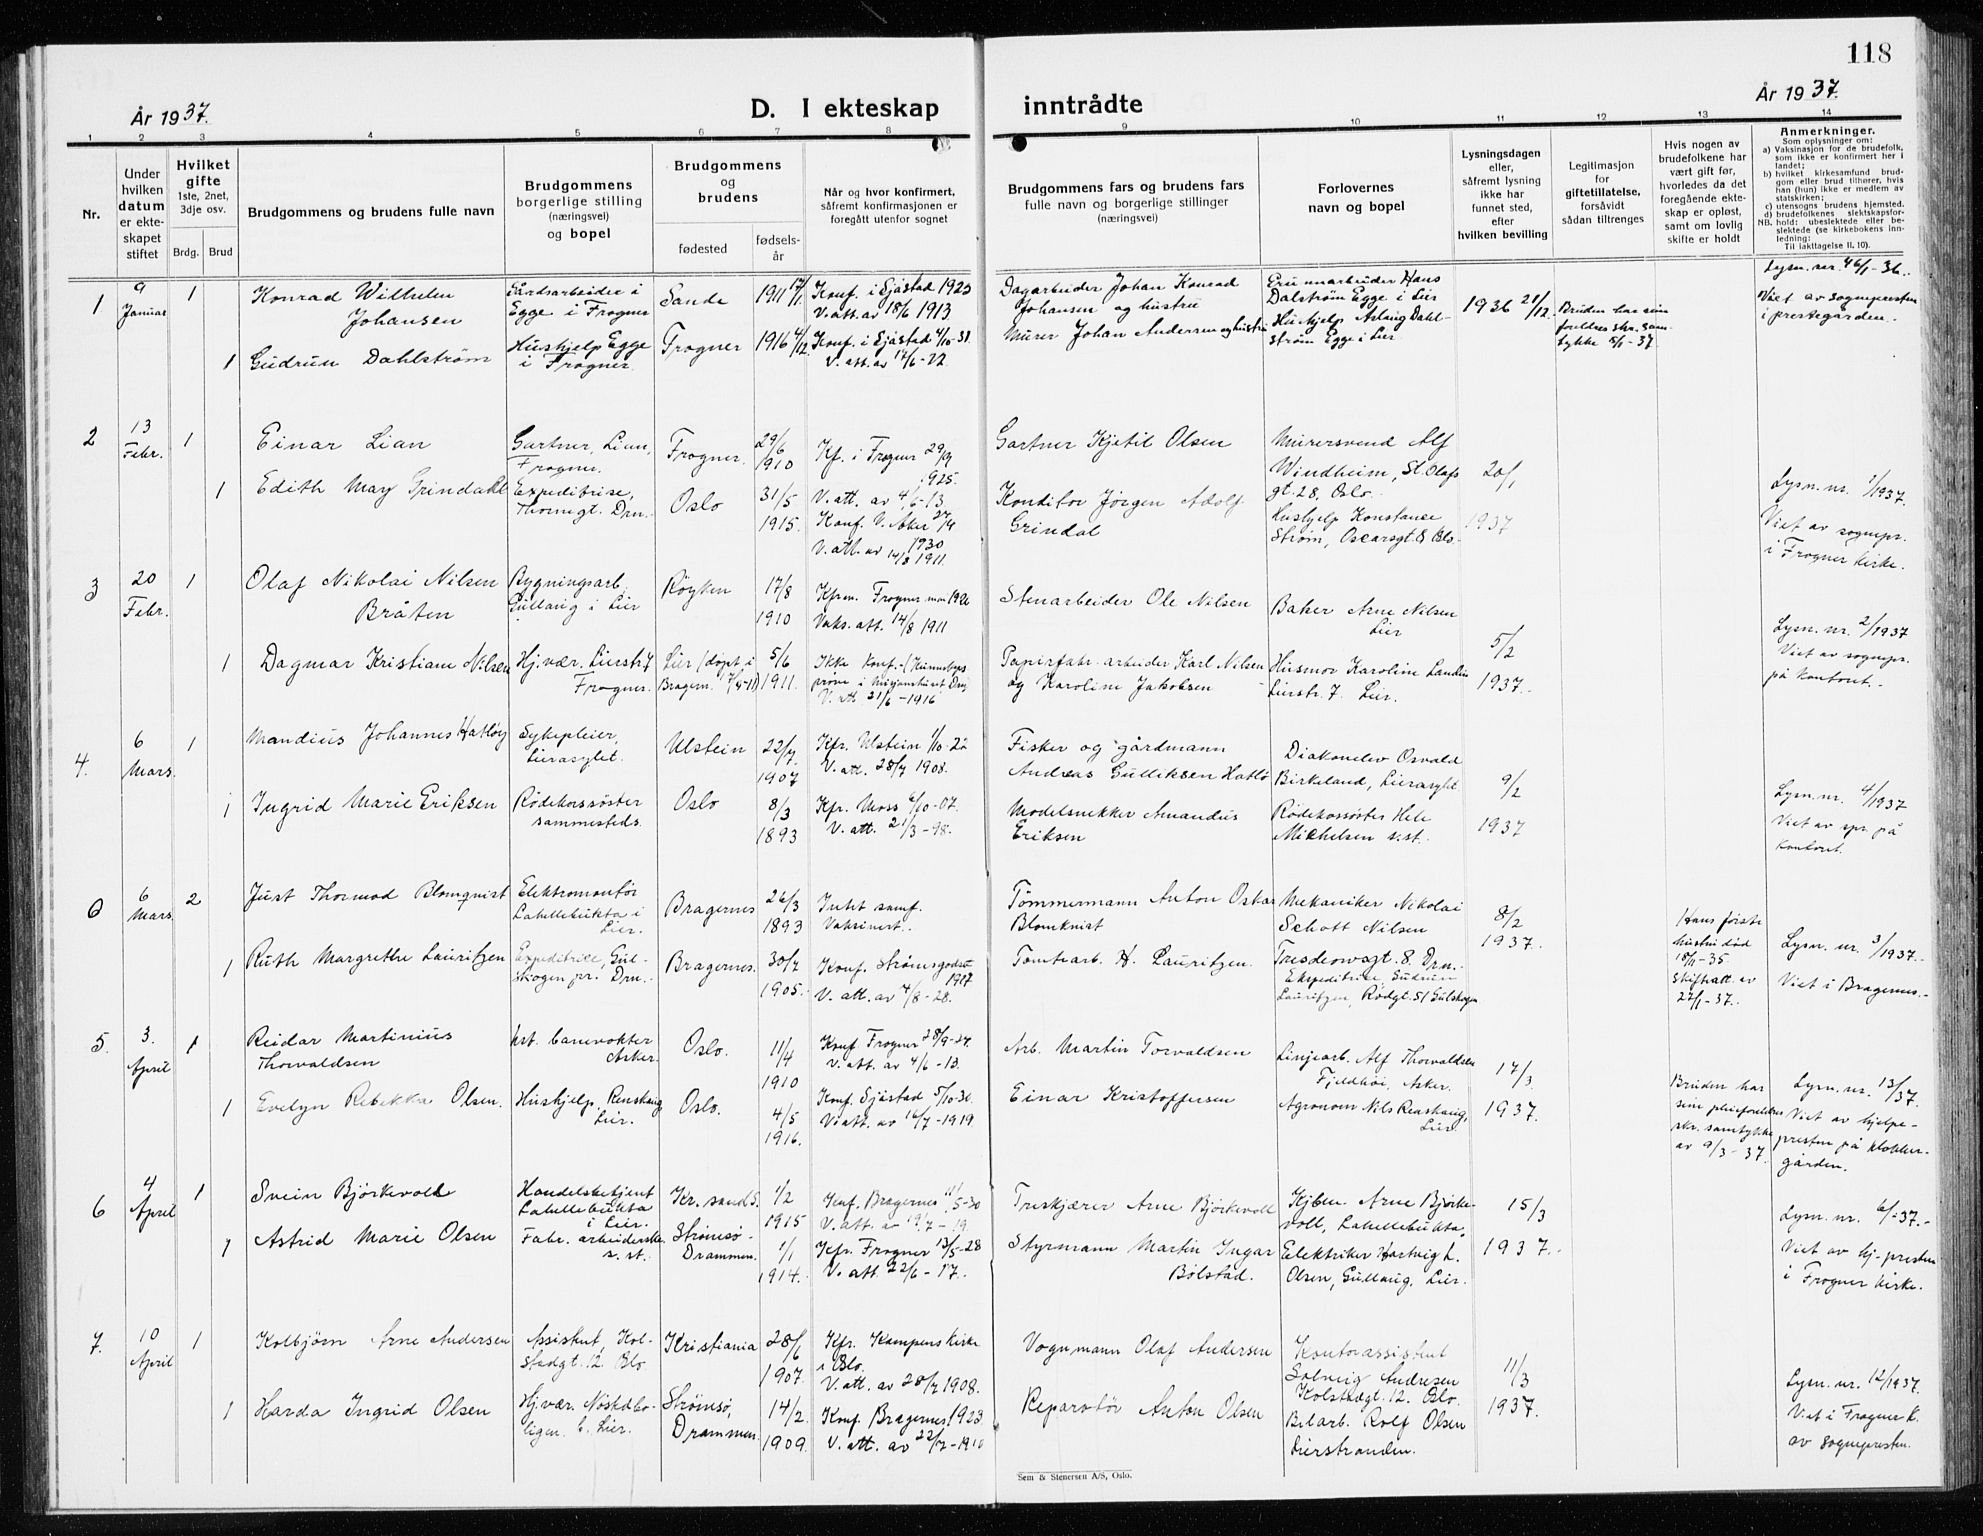 118
År 1937.
D. I ekteskap inntrådte
År 1937.
1 2 3 4 5 6 7 8 9 10 11 12 13 14
Nr.
Under hvilken datum er ekteskapet stiftet
Hvilket gifte 1ste, 2net, 3dje osv.
Brdg. Brud
Brudgommens og brudens fulle navn
Brudgommens borgerlige stilling (næringsvei) og bopel
Brudgommens og brudens
fødested
fødselsår
Når og hvor konfirmert, såfremt konfirmasjonen er foregått utenfor sognet
Brudgommens fars og brudens fars fulle navn og borgerlige stillinger (næringsvei)
Forlovernes navn og bopel
Lysningsdagen eller, såfremt lysning ikke har funnet sted, efter hvilken bevilling
Legitimasjon for giftetillatelse, forsåvidt sådan tiltrenges
Hvis nogen av brudefolkene har vært gift før, hvorledes da det foregående ekteskap er opløst, samt om lovlig skifte er holdt
Anmerkninger.
Som oplysninger om:
a) Vaksinasjon for de brudefolk, som ikke er konfirmert her i landet;
b) hvilket kirkesamfund brudgom eller brud tilhører, hvis han (hun) ikke er medlem av statskirken;
c) utensogns brudens hjemsted.
d) brudefolkenes slektskapsforhold: ubeslektede eller beslektede (se kirkebokens innledning:
NB.
Til iakttagelse II, 10).
1
9 Januar
1
Konrad Wilhelm Johansen
Gårdsarbeider i Egge i Frogner
Sande
1911 17/1
Konf. i Sjåstad 1925
V. att. av 18/6 1913.
Dagarbeider Johan Konrad Johansen og hustru
Dalstrøm Egge i Lier
1936 21/12
Bruden har sine foreldres skr. samtykke 5/1-37
Lysn. nr. 46/1-36.
Viet av sognepresten i prestegården.
1
Gudrun Dahlstrøm
Hushjelp Egge i Frogner.
Frogner
1916 4/12
Konf. i Sjåstad 4/10-31
V. att. av 17/6-22.
Murer Johan Andersen og hustru
Hushjelp Aslaug Dahlstrøm Egge i Lier.
2
13 Febr.
1
Einar Lian
Gartner, Lian, Frogner.
Frogner.
29/6 1910
Kf. i Frogner 29/9 1925.
V. att. av 4/6-13.
Gartner Kjetil Olsen
Murersvend Alf Windheim, St. Olafs gt. 28, Oslo.
20/1 1937
Lysn. nr. 1/1937.
Viet av sognepr. i Frogner kirke.
1
Edith May Grindahl
Expeditrise, Thornegt. Drn.
Oslo
31/5 1915.
Konf. V. Aker 27/4 1930
V. att. av 14/8 1911.
Konditor Jørgen Adolf Grindal
Hushjelp Konstanse Strøm, Oscarsgt. 8 Oslo.
3
20 Febr.
1
Olaf Nikolai Nilsen Bråten
Bygningsarb. Gullaug i Lier
Røyken
17/8 1910
Kfrm. Frogner mai 1926
Vaks. att. 14/8 1911
Stenarbeider Ole Nilsen
Baker Arne Nilsen Lier
5/2 1937.
Lysn. nr. 2/1937
Viet av sognepr. på kontoret.
1
Dagmar Kristiane Nilsen
Hj. vær. Lierstr. 7 Frogner.
Lier (døpt i Bragern. 7/5-11)
5/6 1911.
V. att. 21/6-1916
Papirfabr. arbeider Karl Nilsen og Karoline Jakobsen
Husmor Karoline Landin Lierstr. 7 Lier.
4.
6 Mars.
1
Mandius Johannes Hatløy
Sykepleier, Lierasylet.
Ulstein
22/7 1907
Kfr. Ulstein 1/10-22
V. att. 28/7 1908.
Fisker og gårdmann Andreas Gulliksen Hatlø
Diakonelev Osvald Birkeland, Lierasylet
9/2 1937
Lysn. nr. 4/1937
Viet av spr. på kontoret.
1
Ingrid Marie Eriksen
Rødekorssøster sammesteds.
Oslo
8/3 1893
Kfr. Moss 6/10-07.
V. att. 21/3-98.
Modelsnekker Amandus Eriksen
Rødekorssøster Hele Mikhelsen s. st.
6
6 Mars
2
Just Thormod Blomqvist
Elektromontør Lahellebukta i Lier.
Bragernes
26/3 1893
Intet samf.
Vaksinert.
Tømmermann Anton Oskar Blomkvist
Mekaniker Nikolai Schott Nilsen
8/2 1937.
Hans første hustru død 18/11-35
skifteatt. av 27/1-37.
Lysn. nr. 3/1937.
Viet i Bragernes.
1
Ruth Margrethe Lauritzen
Expeditrice, Gulskogen pr. Drn.
Bragernes.
30/7 1905.
Konf. Strømsgodset 1917
V. att. av 4/8-28.
Tomtearb. H. Lauritzen.
Tresdeowagt. 8. Drn.
Ekspeditrise, Gudrun Lauritzen, Rødgt. 51 Gulskogen
5.
3. April
1
Reidar Martinius Thorvaldsen
kst. banevokter Asker.
Oslo.
11/4 1910
Konf. Frogner 28/9-24.
V. att. av 4/6-13.
Arb. Martin Torvaldsen
Linjearb. Alf Thorvaldsen Fjeldhøi, Asker.
17/3 1937.
Bruden har sine pleieforeldres skr. samtykke av 9/3-37.
Lysn. nr. 13/37.
Viet av hjelpepresten på klokkergården.
1
Evelyn Rebekka Olsen.
Hushjelp, Renskaug Lier.
Oslo.
4/5 1916.
Konf. Sjåstad 5/10-30.
V. att. av 16/7-1919
Einar Kristoffersen
Agronom Nils Renskaug, Lier.
6
4 April
1
Svein Bjørkevoll
Handelsbetjent Lahellebukta i Lier.
Kr. sand S.
1/2 1915
Konf. Bragernes 11/5-30
V. att. av 19/7-19.
Treskjærer Arne Bjørkevoll
Kjbm. Arne Bjørkevoll, Lahellebukta,
15/3 1937.
Lysn. nr. 6/-37.
Viet av hj-presten i Frogner kirke.
1
Astrid Marie Olsen
Fabr. arbeiderske s. st.
Strømsø - Drammen.
1/1 1914.
Kfr. Frogner 13/5-28
V. att. 22/6-17.
Styrmann Martin Ingar Bølstad.
Elektriker Hartvig L. Olsen, Gullaug, Lier.
7.
10 April
1
Kolbjørn Arne Andersen
Assistent, Kolstadgt. 12. Oslo
Kristiania
28/6 1907.
Kfr. Kampens kirke i Oslo.
V. att. av 28/7 1908.
Vognmann Olaf Andersen
Kontorassistent Solveig Andresen Kolstadgt. 12. Oslo.
11/3 1937.
Lysn. nr. 12/1937.
Viet i Frogner K. av sognepresten.
1
Harda Ingrid Olsen
Hj. vær. Nøstaboligen. L. Lier.
Strømsø, Drammen.
14/2 1909.
Konf. Bragernes 1923
V. att. av 22/2-1910
Reparatør Anton Olsen
Bilarb. Rolf Olsen Lierstranden.
Sem & Stenersen A/S, Oslo.